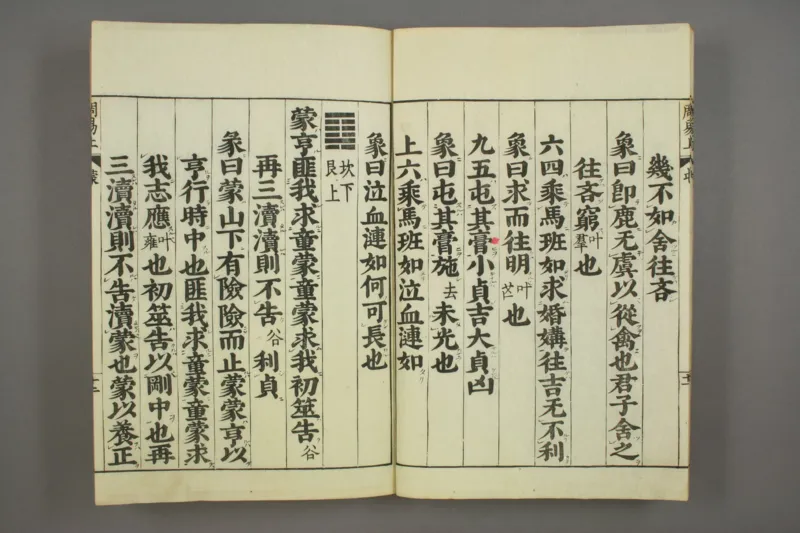 幾不如舍往吝
象曰即鹿无虞以從禽也君子舍之
往吝窮叶羣也
六四乘馬班如求婚媾往吉无不利
象曰求而往明叶芒也
九五屯其膏小貞吉大貞凶
象曰屯其膏施去未光也
上六乘馬班如泣血漣如
象曰泣血漣如何可長也
坎下
艮上
蒙亨匪我求童蒙童蒙求我初筮告谷
再三瀆瀆則不告谷利貞
彖曰蒙山下有險險而止蒙蒙亨以
亨行時中也匪我求童蒙童蒙求
我志應叶雍也初筮告以剛中也再
三瀆瀆則不告瀆蒙也蒙以養正
周易上
蒙